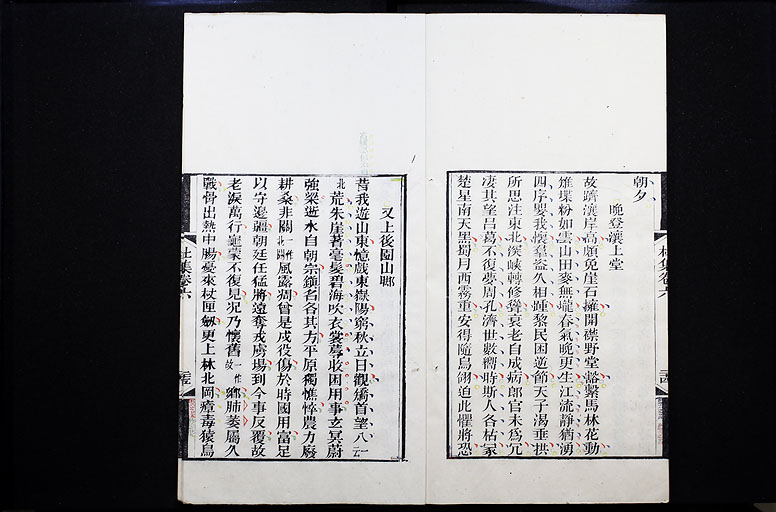 朝夕
晚登瀼上堂
故躋瀼岸高頗免崖石擁開襟野堂豁繫馬林花動
雉堞粉如雲山田麥無壠春氣晚更生江流靜猶湧
四序嬰我懷羣盜久相踵黎民困逆節天子渴垂拱
所思注東北深峽轉修聳衰老自成病郎官未為冗
淒其望呂葛不復夢周孔濟世數嚮時斯人各枯冢
楚星南天黑蜀月西霧重安得隨鳥翎迫此懼將恐
杜集卷六
又上後園山腳
昔我遊山東憶戲東嶽陽窮秋立日觀矯首望八一云
北荒朱崖著毫髮碧海吹衣裳蓐收困用事玄冥蔚
強梁逝水自朝宗鎮名各其方平原獨憔悴農力廢
耕桑非關一作北闕風露凋曾是戍役傷於時國用富足
以守邊疆朝廷任猛將遠奪戎虜場到今事反覆故
老淚萬行龜蒙不復見況乃懷舊一作故鄉肺萎屬久
戰骨出熱中腸憂來杖匣劍更上林北岡瘴毒猿鳥
杜集卷六